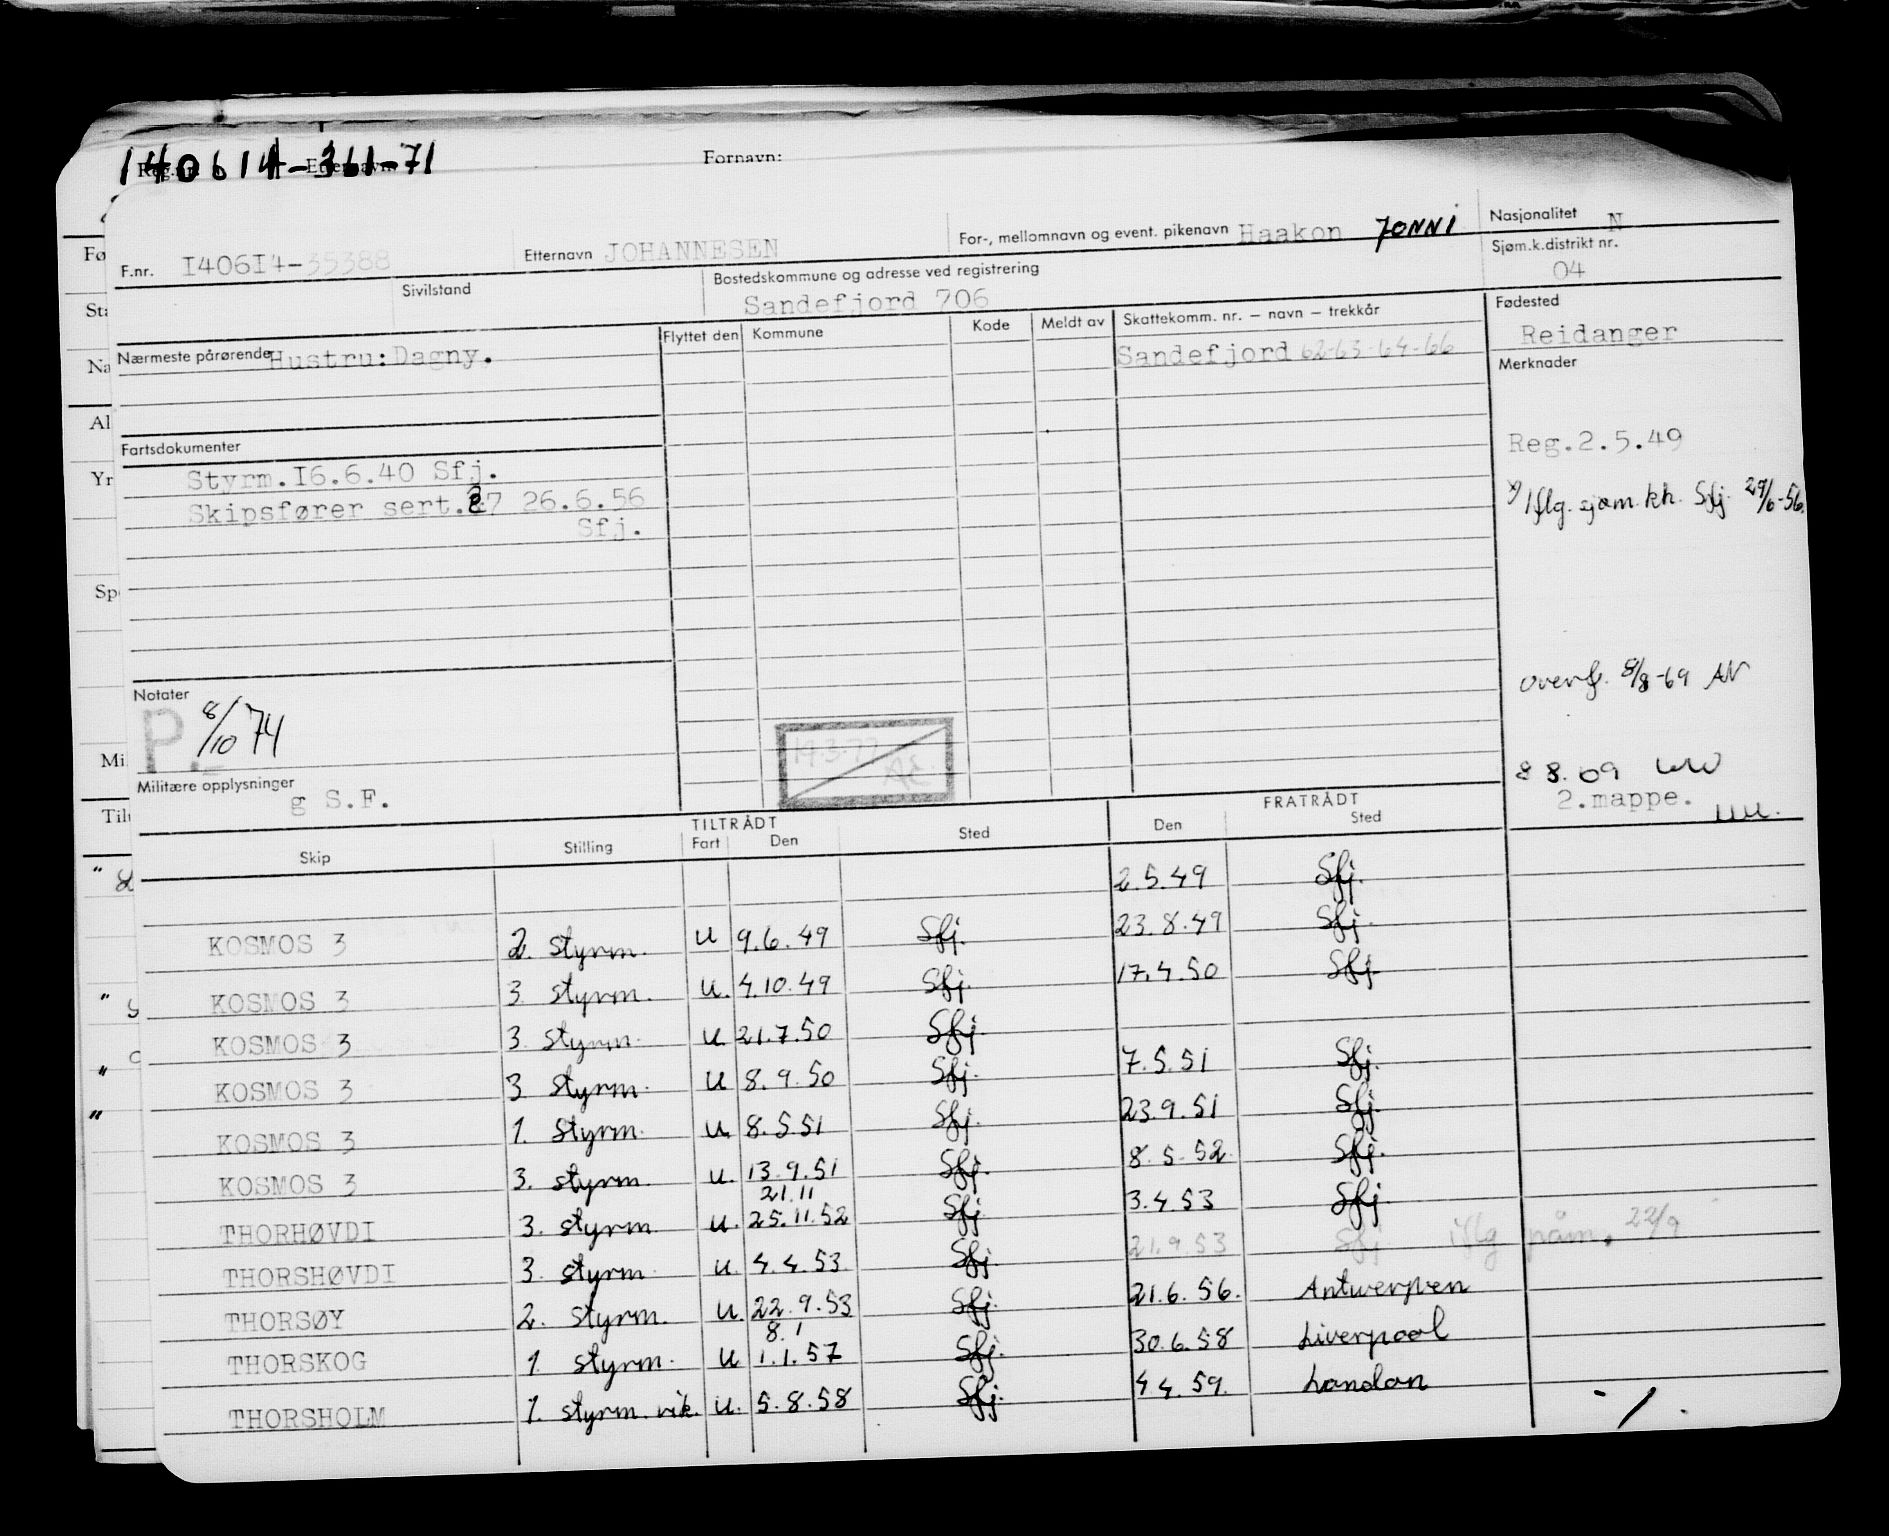 140614-361-71
Fornavn:
F.nr. I406I4-35388 Etternavn JOHANNESEN For-, mellomnavn og event. pikenavn Haakon JONNI Nasjonalitet N
Sivilstand Bostedskommune og adresse ved registrering Sjøm.k.distrikt nr.
Sandefjord 706 04
Nærmeste pårørende Hustru: Dagny. Flyttet den Kommune Kode Meldt av Skattekomm. nr. – navn – trekkår Fødested
Sandefjord 62-63-64-66 Reidanger
Merknader
Fartsdokumenter
Reg.2.5.49
Styrm.I6.6.40 Sfj.
Skipsfører sert. 27 26.6.56
Sfj.
x) Iflg. sjøm.kh. Sfj. 29/6-56.
overf. 8/8-69 AN
Notater
P. 8/10 74
19.3.77
AE
Militære opplysninger
g S.F.
8 8.69
2.mappe.
TILTRÅDT FRATRÅDT
Skip Stilling Fart Den Sted Den Sted
2.5.49 Sfj.
KOSMOS 3 2. styrm. u 9.6.49 Sfj. 23.8.49 Sfj.
KOSMOS 3 3 styrm. u. 4.10.49 Sfj. 17.4.50 Sfj.
KOSMOS 3 3. styrm. u. 21.7.50 Sfj.
KOSMOS 3 3 styrm. u 8.9.50 Sfj. 7.5.51 Sfj.
KOSMOS 3 1. styrm. u. 8.5.51 Sfj. 23.9.51 Sfj.
KOSMOS 3 3. styrm. u. 13.9.51 Sfj. 8.5.52 Sfj.
21.11
THORHØVDI 3. styrm. u. 25.11.52 Sfj. 3.4.53 Sfj.
THORSHØVDI 3. styrm. u. 4.4.53 Sfj. 21.9.53 Sfj. iflg påm. 22/9
THORSØY 2. styrm. u. 22.9.53 Sfj. 21.6.56. Antwerpen
8.1
THORSKOG 1 styrm. u 1.1.57 Sfj. 30.6.58 Liverpool
THORSHOLM 1. styrm. vik. u. 5.8.58 Sfj. 4 4.59. London